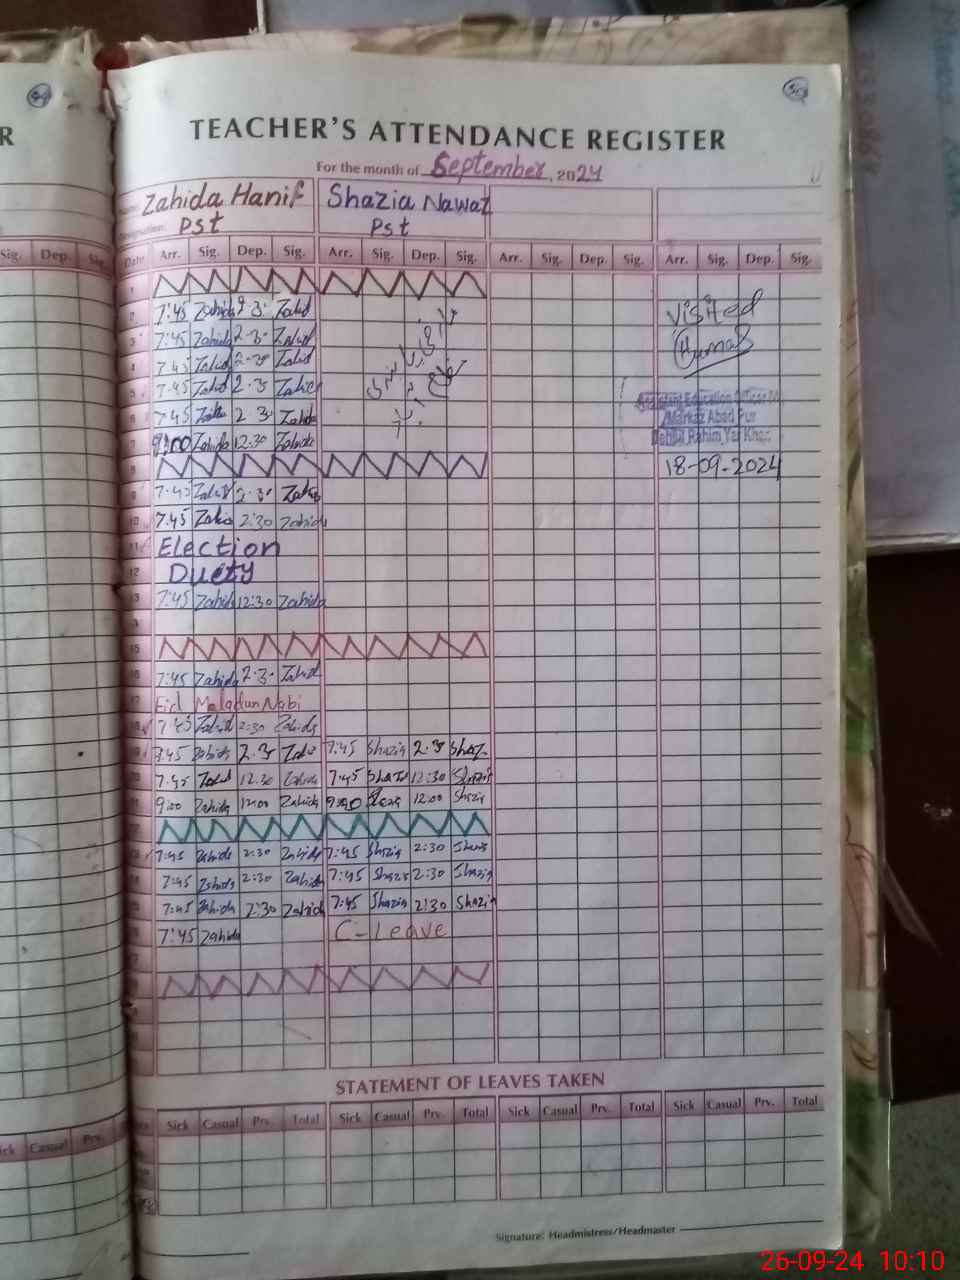 TEACHER'S ATTENDANCE REGISTER
For the month of September, 2024
Zahida Hanif Shazia Nawaz
Pst Pst
Sig. Dep. Sig. Date Arr. Sig. Dep. Sig. Arr. Sig. Dep. Sig. Arr. Sig. Dep. Sig. Arr. Sig. Dep. Sig.
1
2 7:45 Zahida 2:3 Zahid Visited
3 7:45 Zahida 2:30 Zahid
4 7:45 Zahid 2:30 Zahid
5 7:45 Zahid 2:3 Zahid
Assistant Education Officer
6 7:45 2 3 Zahida Markaz Abad Pur
7 9:00 Zahida 12:30 Zahida Rahim Yar Khan
8 18-09-2024
9 7:45 2:30
10 7:45 Zahid 2:30 Zahida
11 Election
12 Duety
13 7:45 Zahida 12:30 Zahida
15
16 7:45 Zahida 2:3 Zahid
17 Eid Meladun Nabi
18 7:45 Zahid 2:30 Zahida
7:45 Zahida 2:3 7:45 Shazia 2:3 Shaz
7:45 12:30 Zahida 7:45 Shazi 12:30 Shazia
9:00 Zahida 12:00 Zahida 12:00 Shazia
7:45 Zahida 2:30 Zahida 7:45 Shazia 2:30 Shazia
7:45 Zahida 2:30 Zahida 7:45 Shazia 2:30 Shazia
7:45 Zahida 2:30 Zahida 7:45 Shazia 2:30 Shazia
7:45 Zahida C-Leave
STATEMENT OF LEAVES TAKEN
Sick Casual Prv. Sick Casual Prv. Total Sick Casual Prv. Total Sick Casual Prv. Total Sick Casual Prv. Total
Signature: Headmistress/Headmaster
26-09-24 10:10